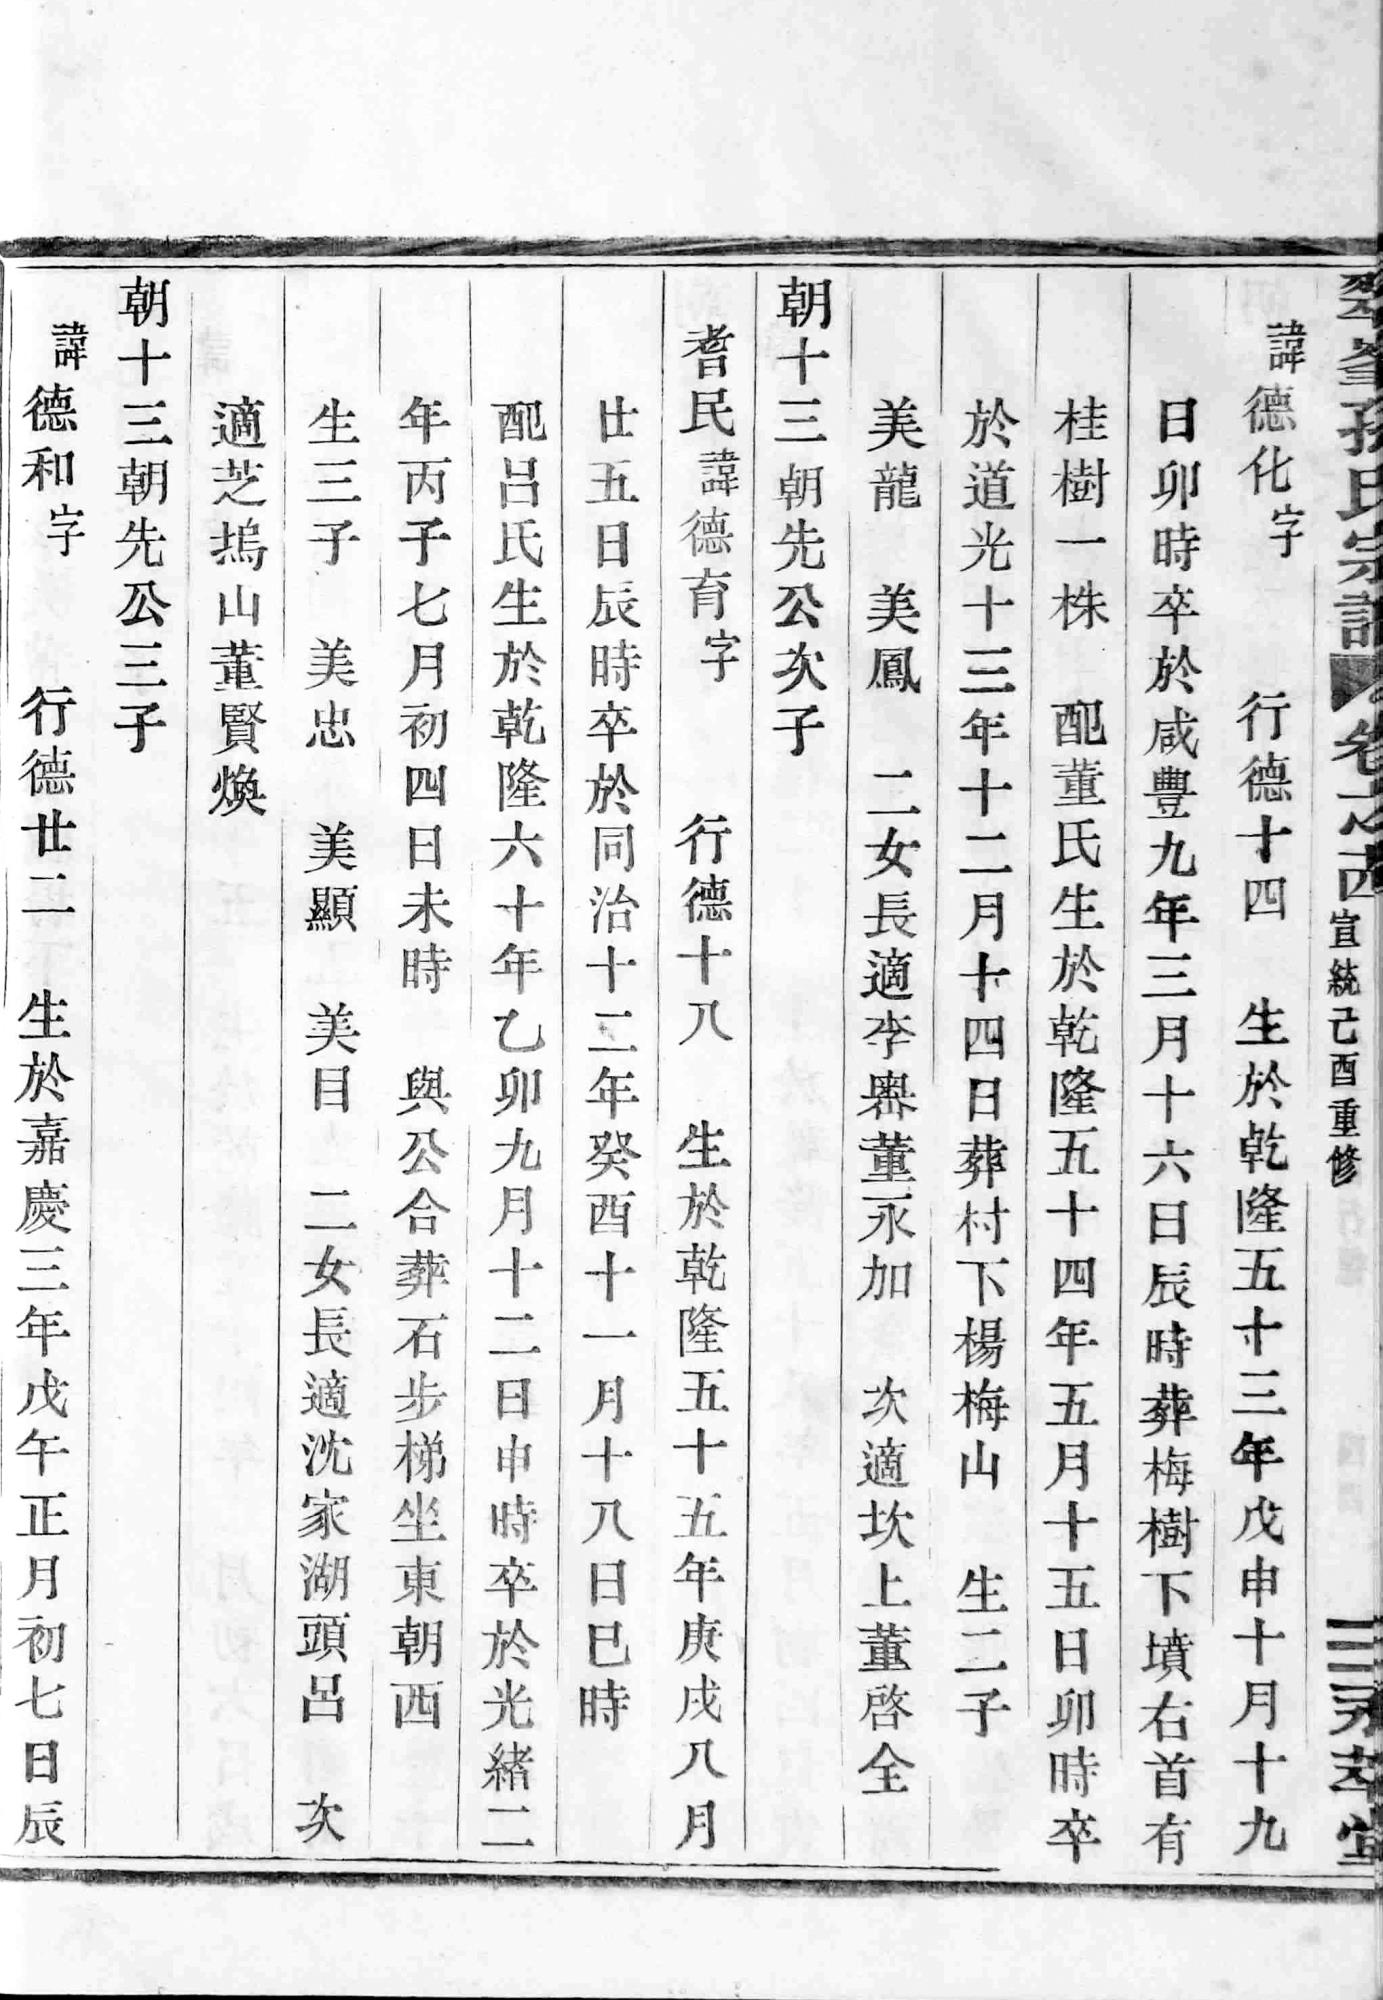 翠峯孫氏宗譜 卷之四 宣統己酉重修 三永萃堂
諱德化字 行德十四 生於乾隆五十三年戊申十月十九
日卯時卒於咸豐九年三月十六日辰時葬梅樹下墳右首有
桂樹一株 配董氏生於乾隆五十四年五月十五日卯時卒
於道光十三年十二月十四日葬村下楊梅山 生二子
美龍 美鳳 二女長適李嶴董永加 次適坎上董啓全
朝十三朝先公次子
耆民諱德育字 行德十八 生於乾隆五十五年庚戌八月
廿五日辰時卒於同治十二年癸酉十一月十八日巳時
配呂氏生於乾隆六十年乙卯九月十二日申時卒於光緒二
年丙子七月初四日未時 與公合葬石步梯坐東朝西
生三子 美忠 美顯 美目 二女長適沈家湖頭呂 次
適芝塢山董賢煥
朝十三朝先公三子
諱德和字 行德廿二 生於嘉慶三年戊午正月初七日辰